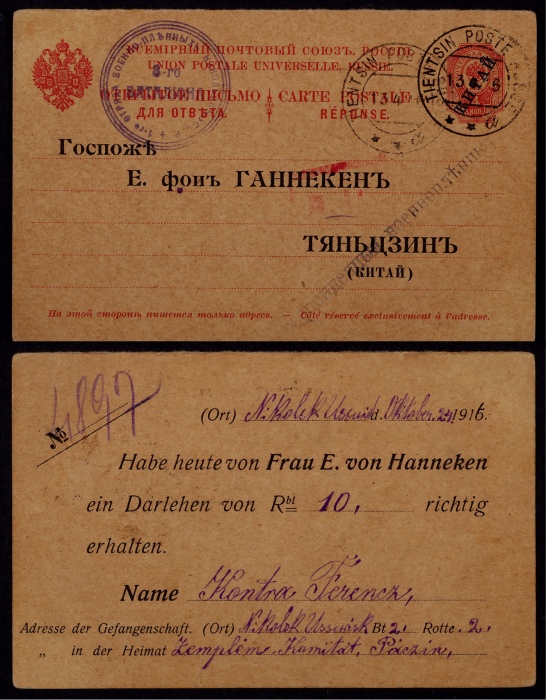 ВСЕМІРНЫЙ ПОЧТОВЫЙ СОЮЗЪ. РОССІЯ.
UNION POSTALE UNIVERSELLE. RUSSIE.
ОТКРЫТОЕ ПИСЬМО CARTE POSTALE
ДЛЯ ОТВѢТА. RÉPONSE.
БАТАЛІОНЪ
TIENTSIN POSTE
TIENTSIN POSTE
КИТАЙ
Госпожѣ
Е. фонъ ГАННЕКЕНЪ
ТЯНЬЦЗИНЪ
(КИТАЙ)
На этой сторонѣ пишется только адресъ. — Côté réservé exclusivement à l'adresse.
№ 4897
(Ort) Nikolsk Ussurisk d. Oktober 24 1916.
Habe heute von Frau E. von Hanneken
ein Darlehen von Rbl 10, richtig
erhalten.
Name Kontra Ferencz,
Adresse der Gefangenschaft. (Ort) Nikolsk Bt 2. Rotte 2.
„ in der Heimat Zemplém Komitát, Páczin,